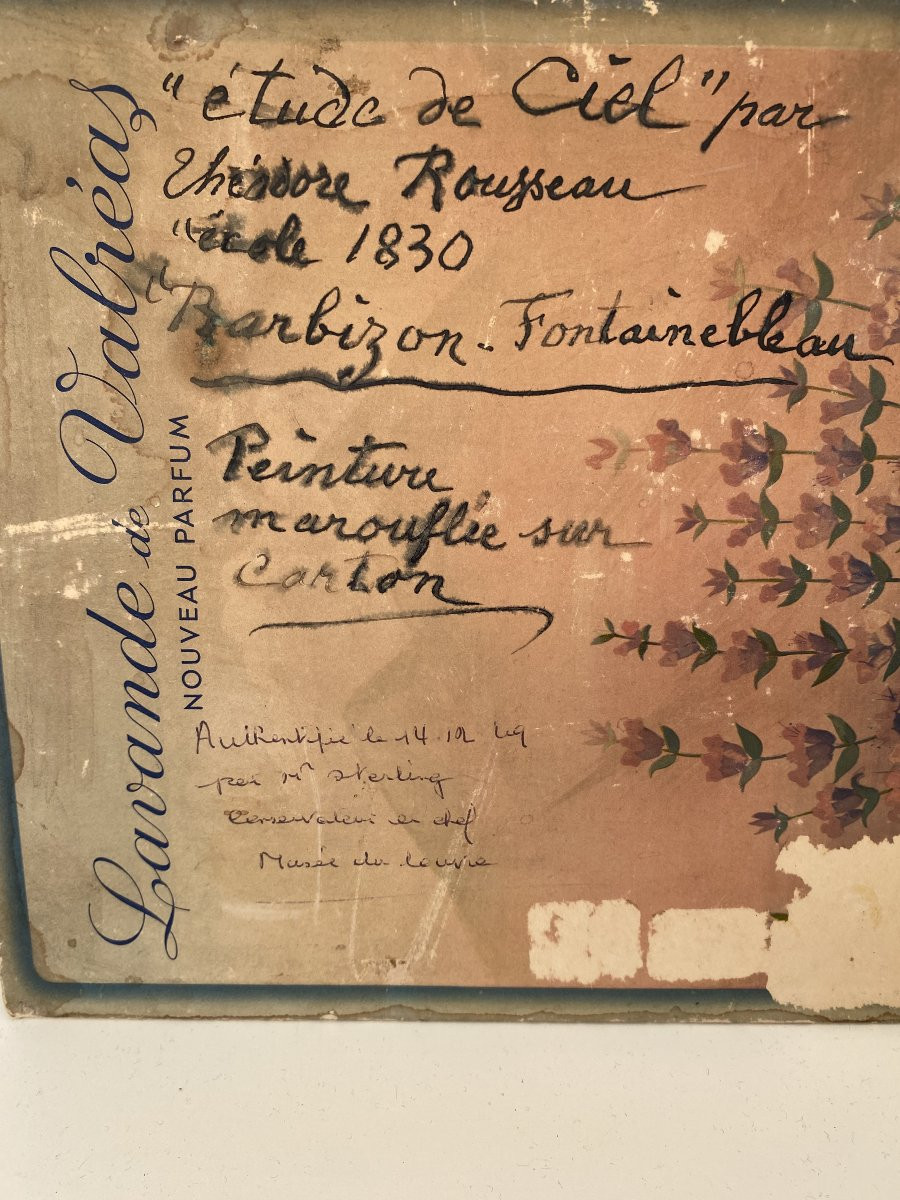 "étude de Ciel" par
Théodore Rousseau
"école 1830
"Barbizon - Fontainebleau
Peinture
marouflée sur
Carton
Authentifié le 14.12
par Mr Sterling
Conservateur en chef
Musée du louvre
Lavande de Valréas
NOUVEAU PARFUM